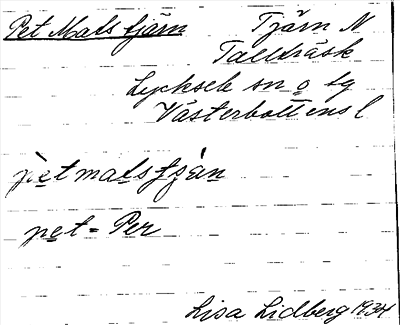 Pet Mats tjärn Tjärn N
Tallträsk
Lycksele sn o tg
Västerbottens l
pètmatstjàn
pet = Per
Lisa Lidberg 1934